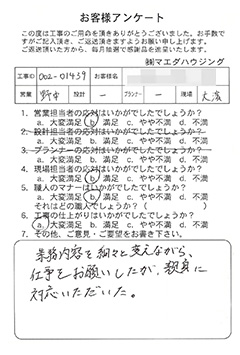 お客様アンケート
この度は工事のご用命を頂きありがとうございました。お手数で
すがご記入頂き、ご返送頂きますようお願い申し上げます。
ご返送頂いた方から、毎月抽選で感謝品を送呈いたします。
㈱マエダハウジング
工事ID 002-01459 お客様名
営業 野中 設計 ー プランナー ー 現場
1. 営業担当者の応対はいかがでしたでしょうか?
a. 大変満足 b. 満足 c. やや不満 d. 不満
2. 設計担当者の応対はいかがでしたでしょうか?
a. 大変満足 b. 満足 c. やや不満 d. 不満
3. プランナーの応対はいかがでしたでしょうか?
a. 大変満足 b. 満足 c. やや不満 d. 不満
4. 現場担当者の応対はいかがでしたでしょうか?
a. 大変満足 b. 満足 c. やや不満 d. 不満
5. 職人のマナーはいかがでしたでしょうか?
a. 大変満足 b. 満足 c. やや不満 d. 不満
それはどの職人でしょうか?( )
6. 工事の仕上がりはいかがでしたでしょうか?
a. 大変満足 b. 満足 c. やや不満 d. 不満
7. その他、ご意見・ご要望をお書き下さい。
業務内容を細々と変えながら、
仕事をお願いしたが、親身に
対応いただいた。